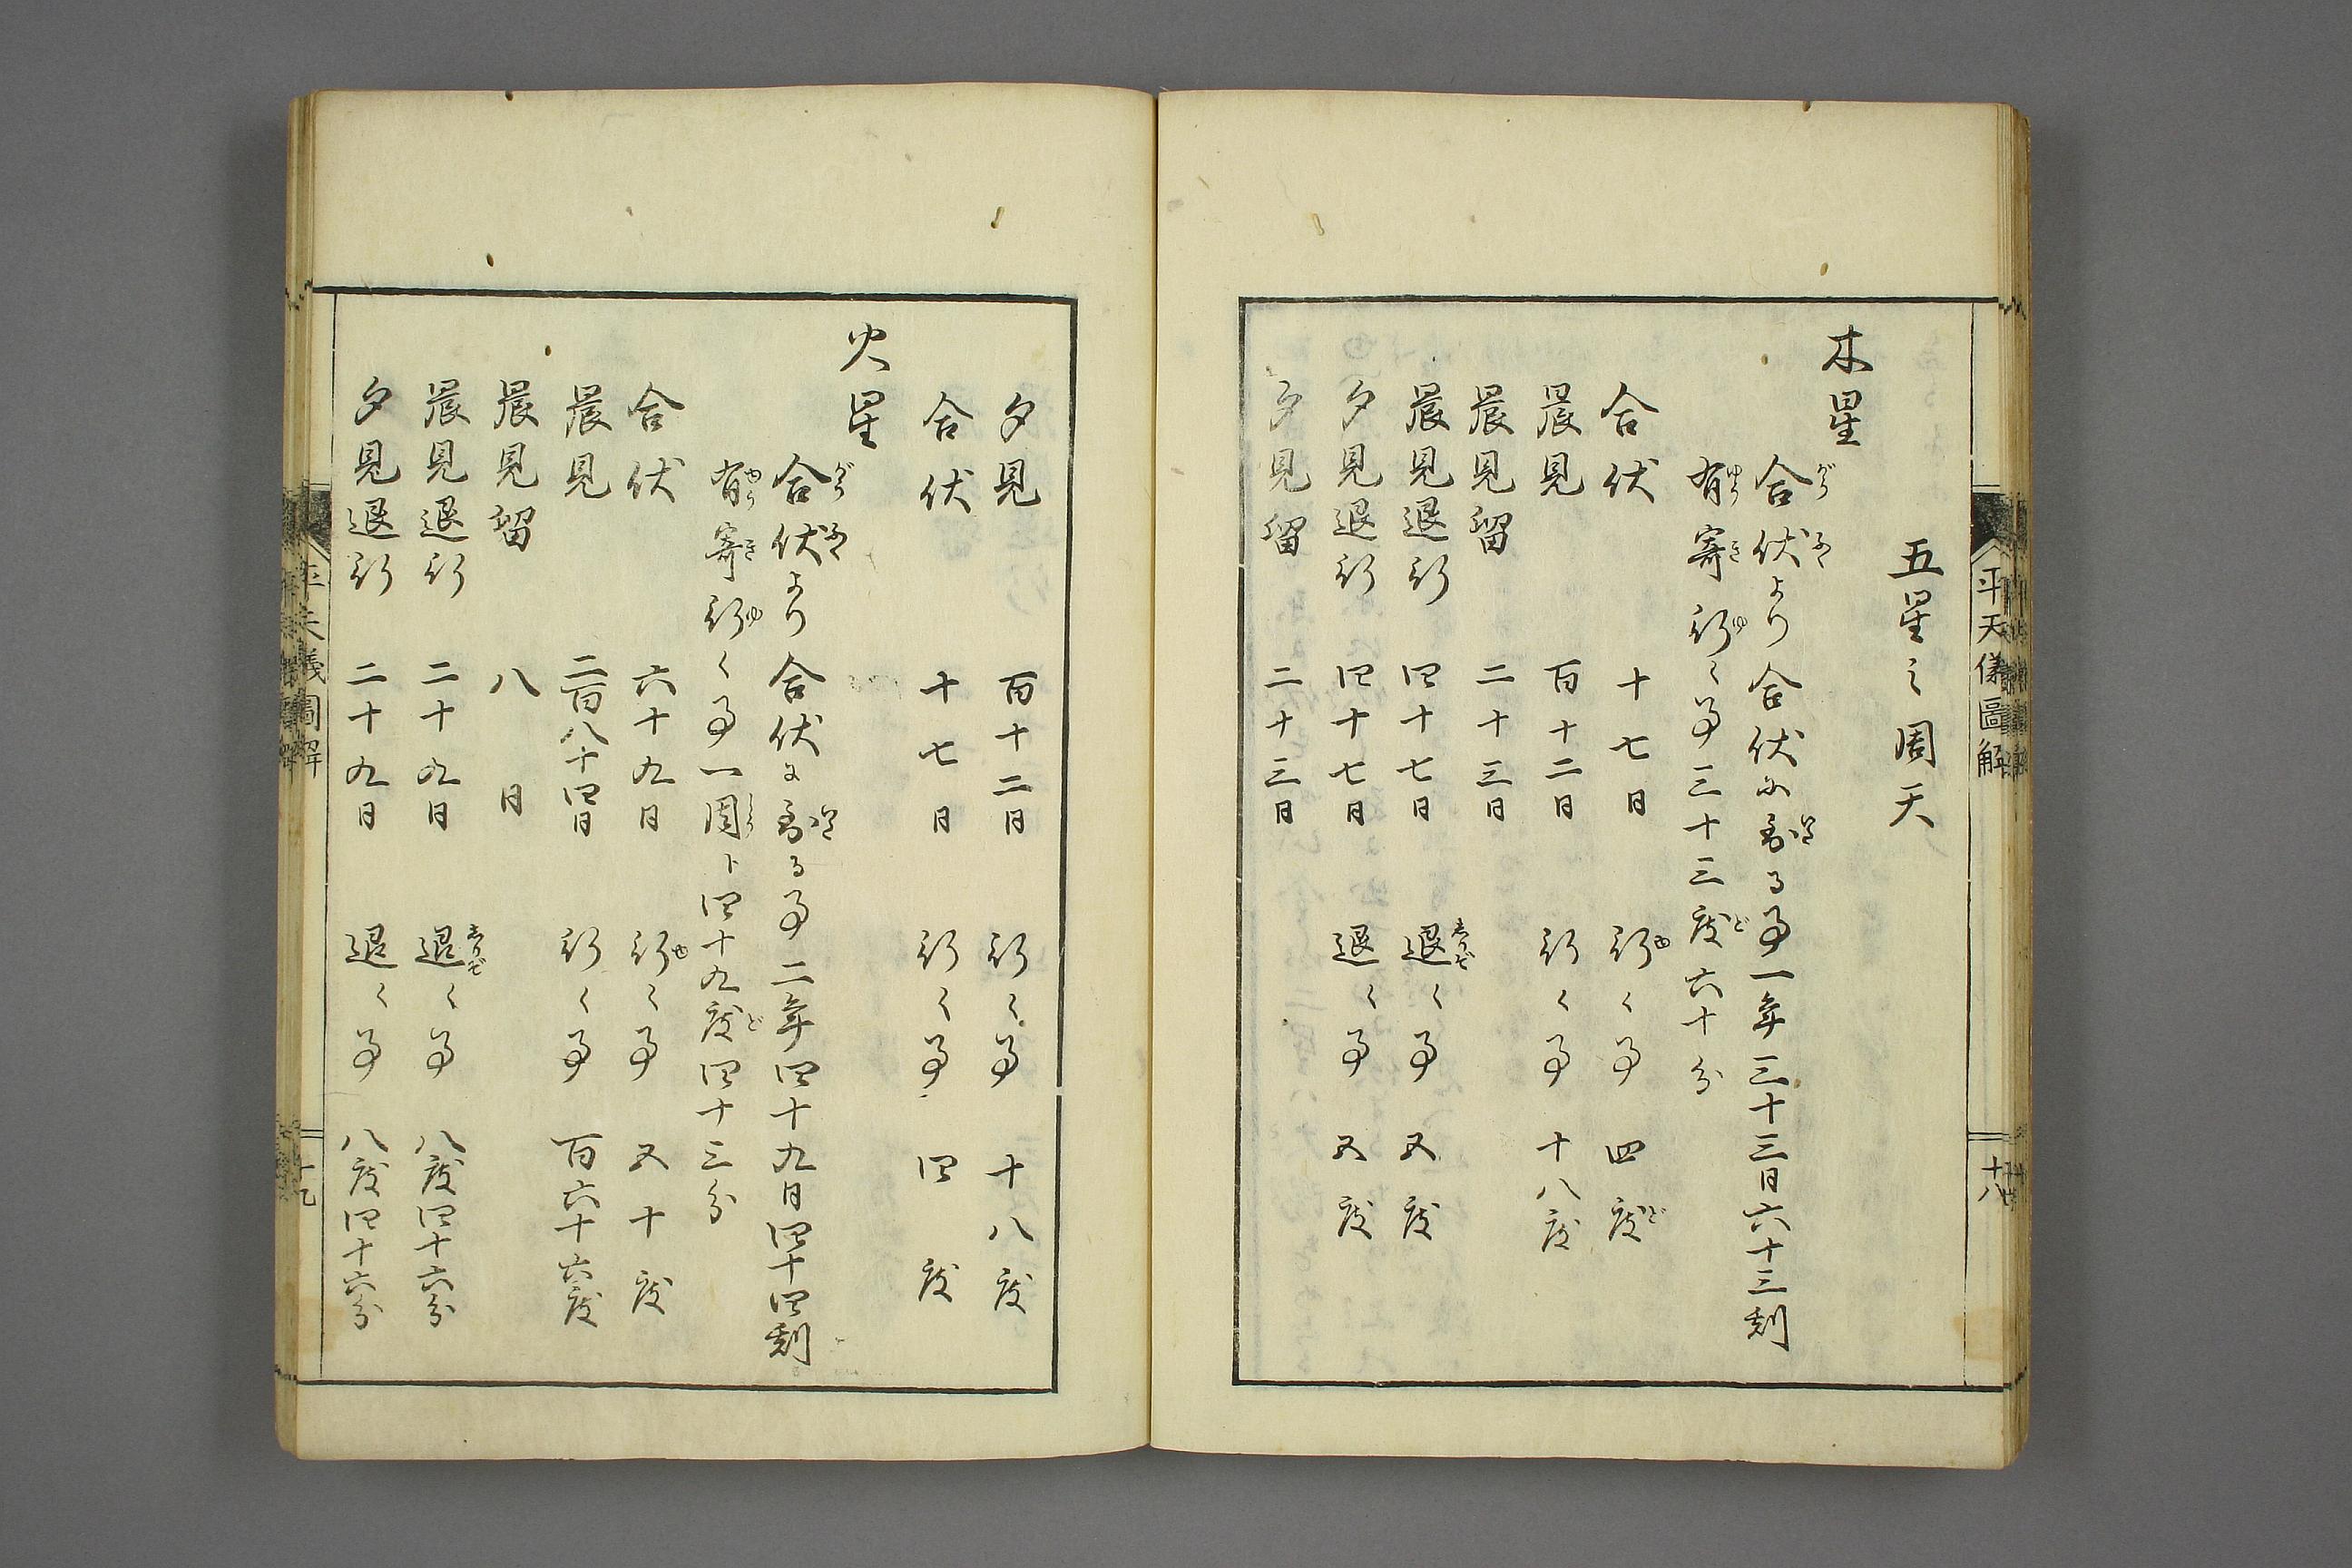 平天儀圖解
十八
五星之周天
木星
合伏より合伏に至る事一年三十三日六十三刻
有寄行く事三十三度六十分
合伏 十七日 行く事 四度
晨見 百十二日 行く事 十八度
晨見留 二十三日
晨見退行 四十七日 退く事 五度
夕見退行 四十七日 退く事 五度
夕見留 二十三日
夕見 百十二日 行く事 十八度
合伏 十七日 行く事 四度
火星
合伏より合伏に至る事二年四十九日四十四刻
有寄行く事一周ト四十九度四十三分
合伏 六十九日 行く事 五十度
晨見 二百八十四日 行く事 百六十六度
晨見留 八日
晨見退行 二十九日 退く事 八度四十六分
夕見退行 二十九日 退く事 八度四十六分
平天儀圖解